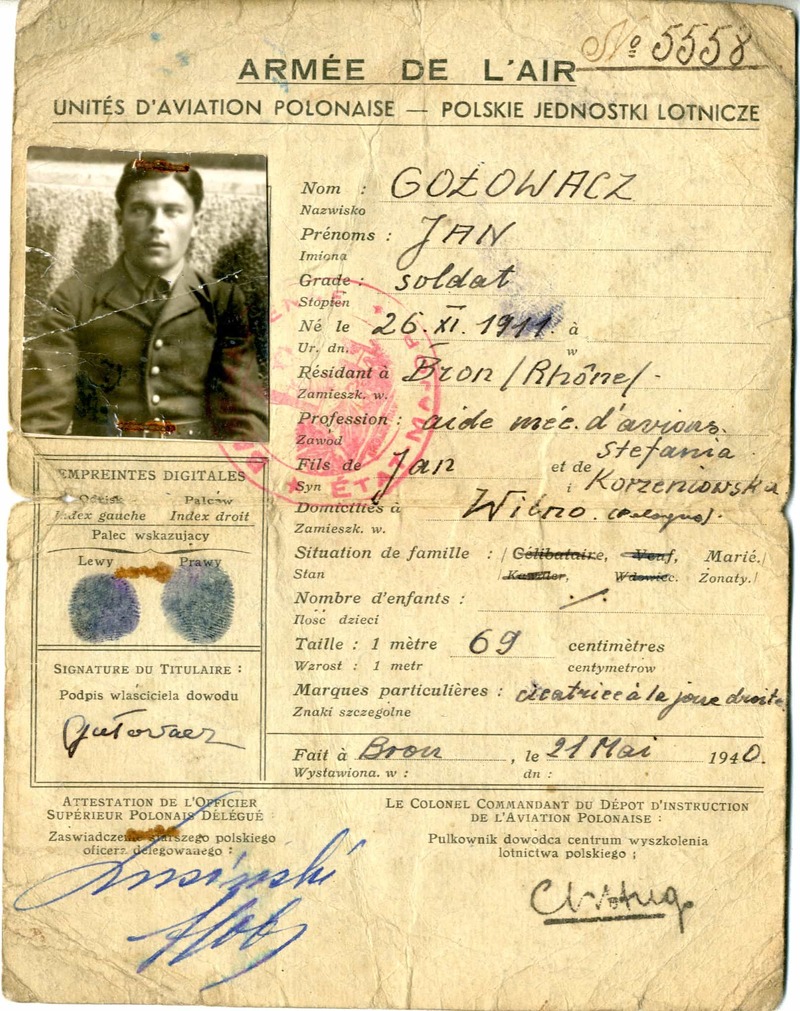 № 5558
ARMÉE DE L'AIR
UNITÉS D'AVIATION POLONAISE — POLSKIE JEDNOSTKI LOTNICZE
Nom : GOŁOWACZ
Nazwisko
Prénoms : JAN
Imiona
Grade : soldat
Stopień
Né le 26. XI. 1911. à
Ur. dn. w
Résidant à Bron /Rhône/-
Zamieszk. w.
Profession : aide méc. d'avions.
Zawód
Stefania
Fils de Jan et de Korzeniowska
Syn i
Domiciliés à Wilno. (Pologne).
Zamieszk. w.
Situation de famille : / Célibataire, Veuf, Marié./
Stan / Kawaler, Wdowiec. Żonaty./
Nombre d'enfants : /.
Ilość dzieci
Taille : 1 mètre 69 centimètres
Wzrost : 1 metr centymetrów
Marques particulières : cicatrice à la joue droite
Znaki szczególne
Fait à Bron, le 21 Mai 1940.
Wystawiona. w : dn :
EMPREINTES DIGITALES
Odcisk Palców
Index gauche Index droit
Palec wskazujący
Lewy Prawy
SIGNATURE DU TITULAIRE :
Podpis wlaściciela dowodu
ATTESTATION DE L'OFFICIER
SUPÉRIEUR POLONAIS DÉLÉGUÉ
Zaswiadczenie starszego polskiego
oficera delegowanego :
LE COLONEL COMMANDANT DU DÉPOT D'INSTRUCTION
DE L'AVIATION POLONAISE :
Pulkownik dowodca centrum wyszkolenia
lotnictwa polskiego ;
ÉTAT M